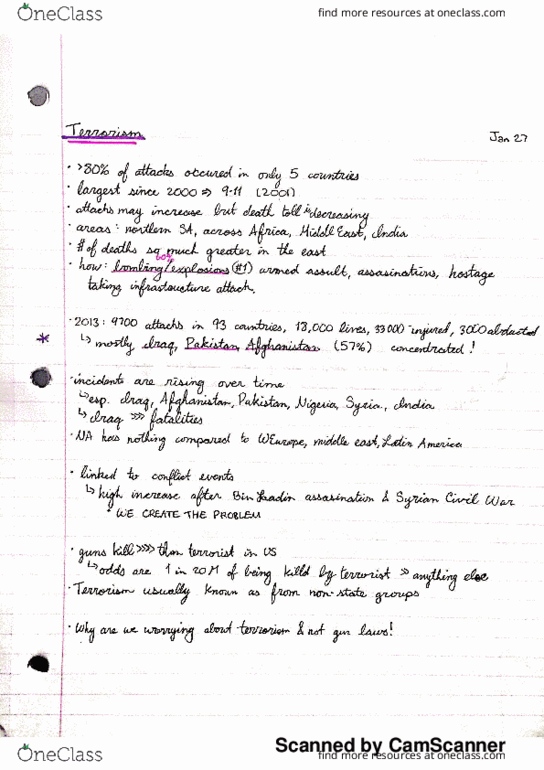 OneClass
find more resources at oneclass.com
Terrorism
Jan 27
· >80% of attacks occured in only 5 countries
· largest since 2000 ⇒ 9·11 (2001)
· attacks may increase but death toll is decreasing
· areas : northern SA, across Africa, Middle East, India
· # of deaths so much greater in the east
· how : bombing/explosions (#1) armed assult, assasinations, hostage
taking infrastructure attack,
* · 2013 : 9700 attacks in 93 countries, 18,000 lives, 33000 injured, 3000 abducted
↳ mostly Iraq, Pakistan, Afghanistan (57%) concentrated !
· incidents are rising over time
↳ esp. Iraq, Afghanistan, Pakistan, Nigeria, Syria., India
↳ Iraq >>> fatalities
· NA has nothing compared to WEurope, middle east, Latin America
· linked to conflict events
↳ high increase after Bin Ladin assasination & Syrian Civil War
* WE CREATE THE PROBLEM
· guns kill >>>> than terrorist in US
↳ odds are 1 in 20M of being killd by terrorist >> anything else
· Terrorism usually known as from non-state groups
· Why are we worrying about terrorism & not gun laws!
Scanned by CamScanner
OneClass
find more resources at oneclass.com